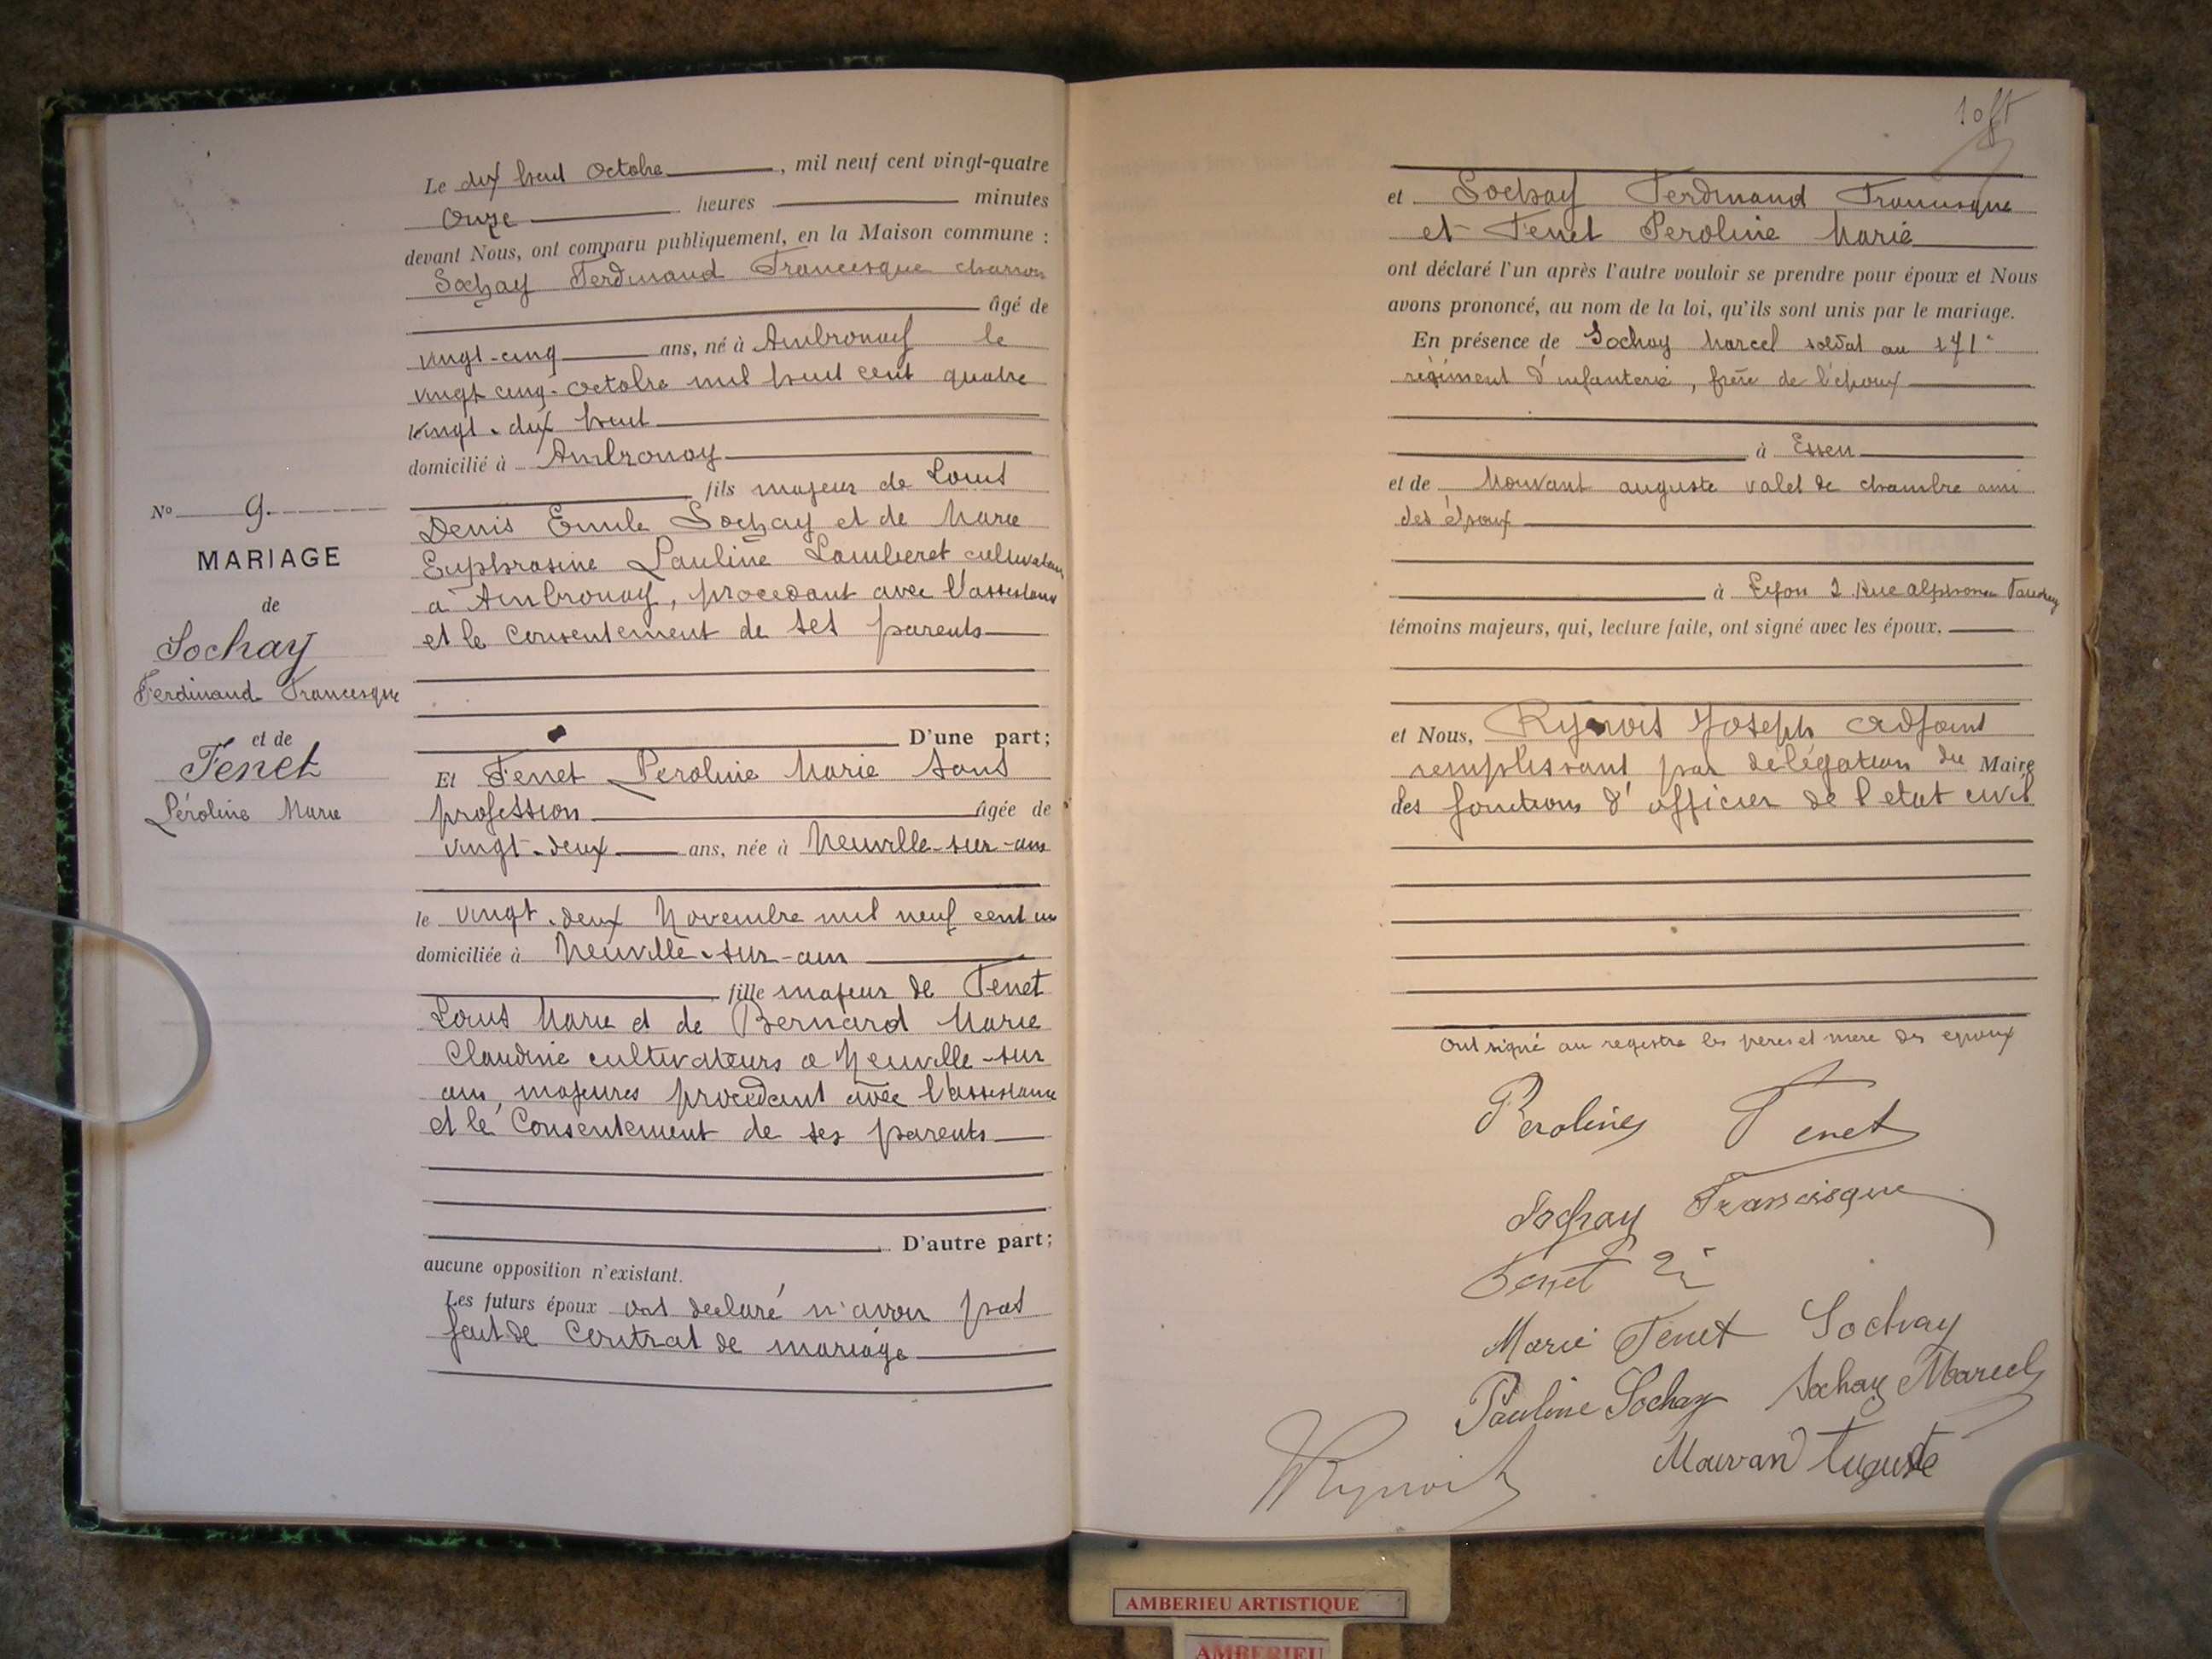 Le dix huit Octobre, mil neuf cent vingt-quatre
Onze heures minutes
devant Nous, ont comparu publiquement, en la Maison commune :
Sochay Ferdinand Francesque charron
âgé de
vingt-cinq ans, né à Ambronay le
vingt cinq octobre mil huit cent quatre
vingt-dix huit
domicilié à Ambronay
fils majeur de Louis
Denis Emile Sochay et de Marie
Euphrasine Pauline Lamberet cultivateurs
à Ambronay, procedant avec l'assistance
et le consentement de ses parents
D'une part;
Et Tenet Peroline Marie sans
profession âgée de
vingt-deux ans, née à Neuville-sur-ain
le vingt-deux Novembre mil neuf cent un
domiciliée à Neuville-sur-ain
fille majeur de Tenet
Louis Marie et de Bernard Marie
Claudine cultivateurs a Neuville-sur
ain, majeures procedant avec l'assistance
et le Consentement de ses parents
D'autre part;
aucune opposition n'existant.
Les futurs époux ont declaré n'avoir pas
fait de Contrat de mariage
N° 9.
MARIAGE
de
Sochay
Ferdinand Francesque
et de
Tenet
Péroline Marie
et Sochay Ferdinand Francisque
et Tenet Peroline Marie
ont déclaré l'un après l'autre vouloir se prendre pour époux et Nous
avons prononcé, au nom de la loi, qu'ils sont unis par le mariage.
En présence de Sochay Marcel soldat au 171e
régiment d'infanterie, frère de l'époux
à Essen
et de Mouvant auguste valet de chambre ami
des époux
à Lyon 2 Rue alphonse
témoins majeurs, qui, lecture faite, ont signé avec les époux.
et Nous, Rynois Joseph Adjoint
remplissant par délégation du Maire
des fonctions d'officier de l'etat civil
Ont signé au registre les peres et mere des epoux
Peroline Tenet
Sochay Francisque
Tenet
Marie Tenet Sochay
Pauline Sochay Sochay Marcel
Rynois Mouvan Auguste
AMBERIEU ARTISTIQUE
AMBERIEU